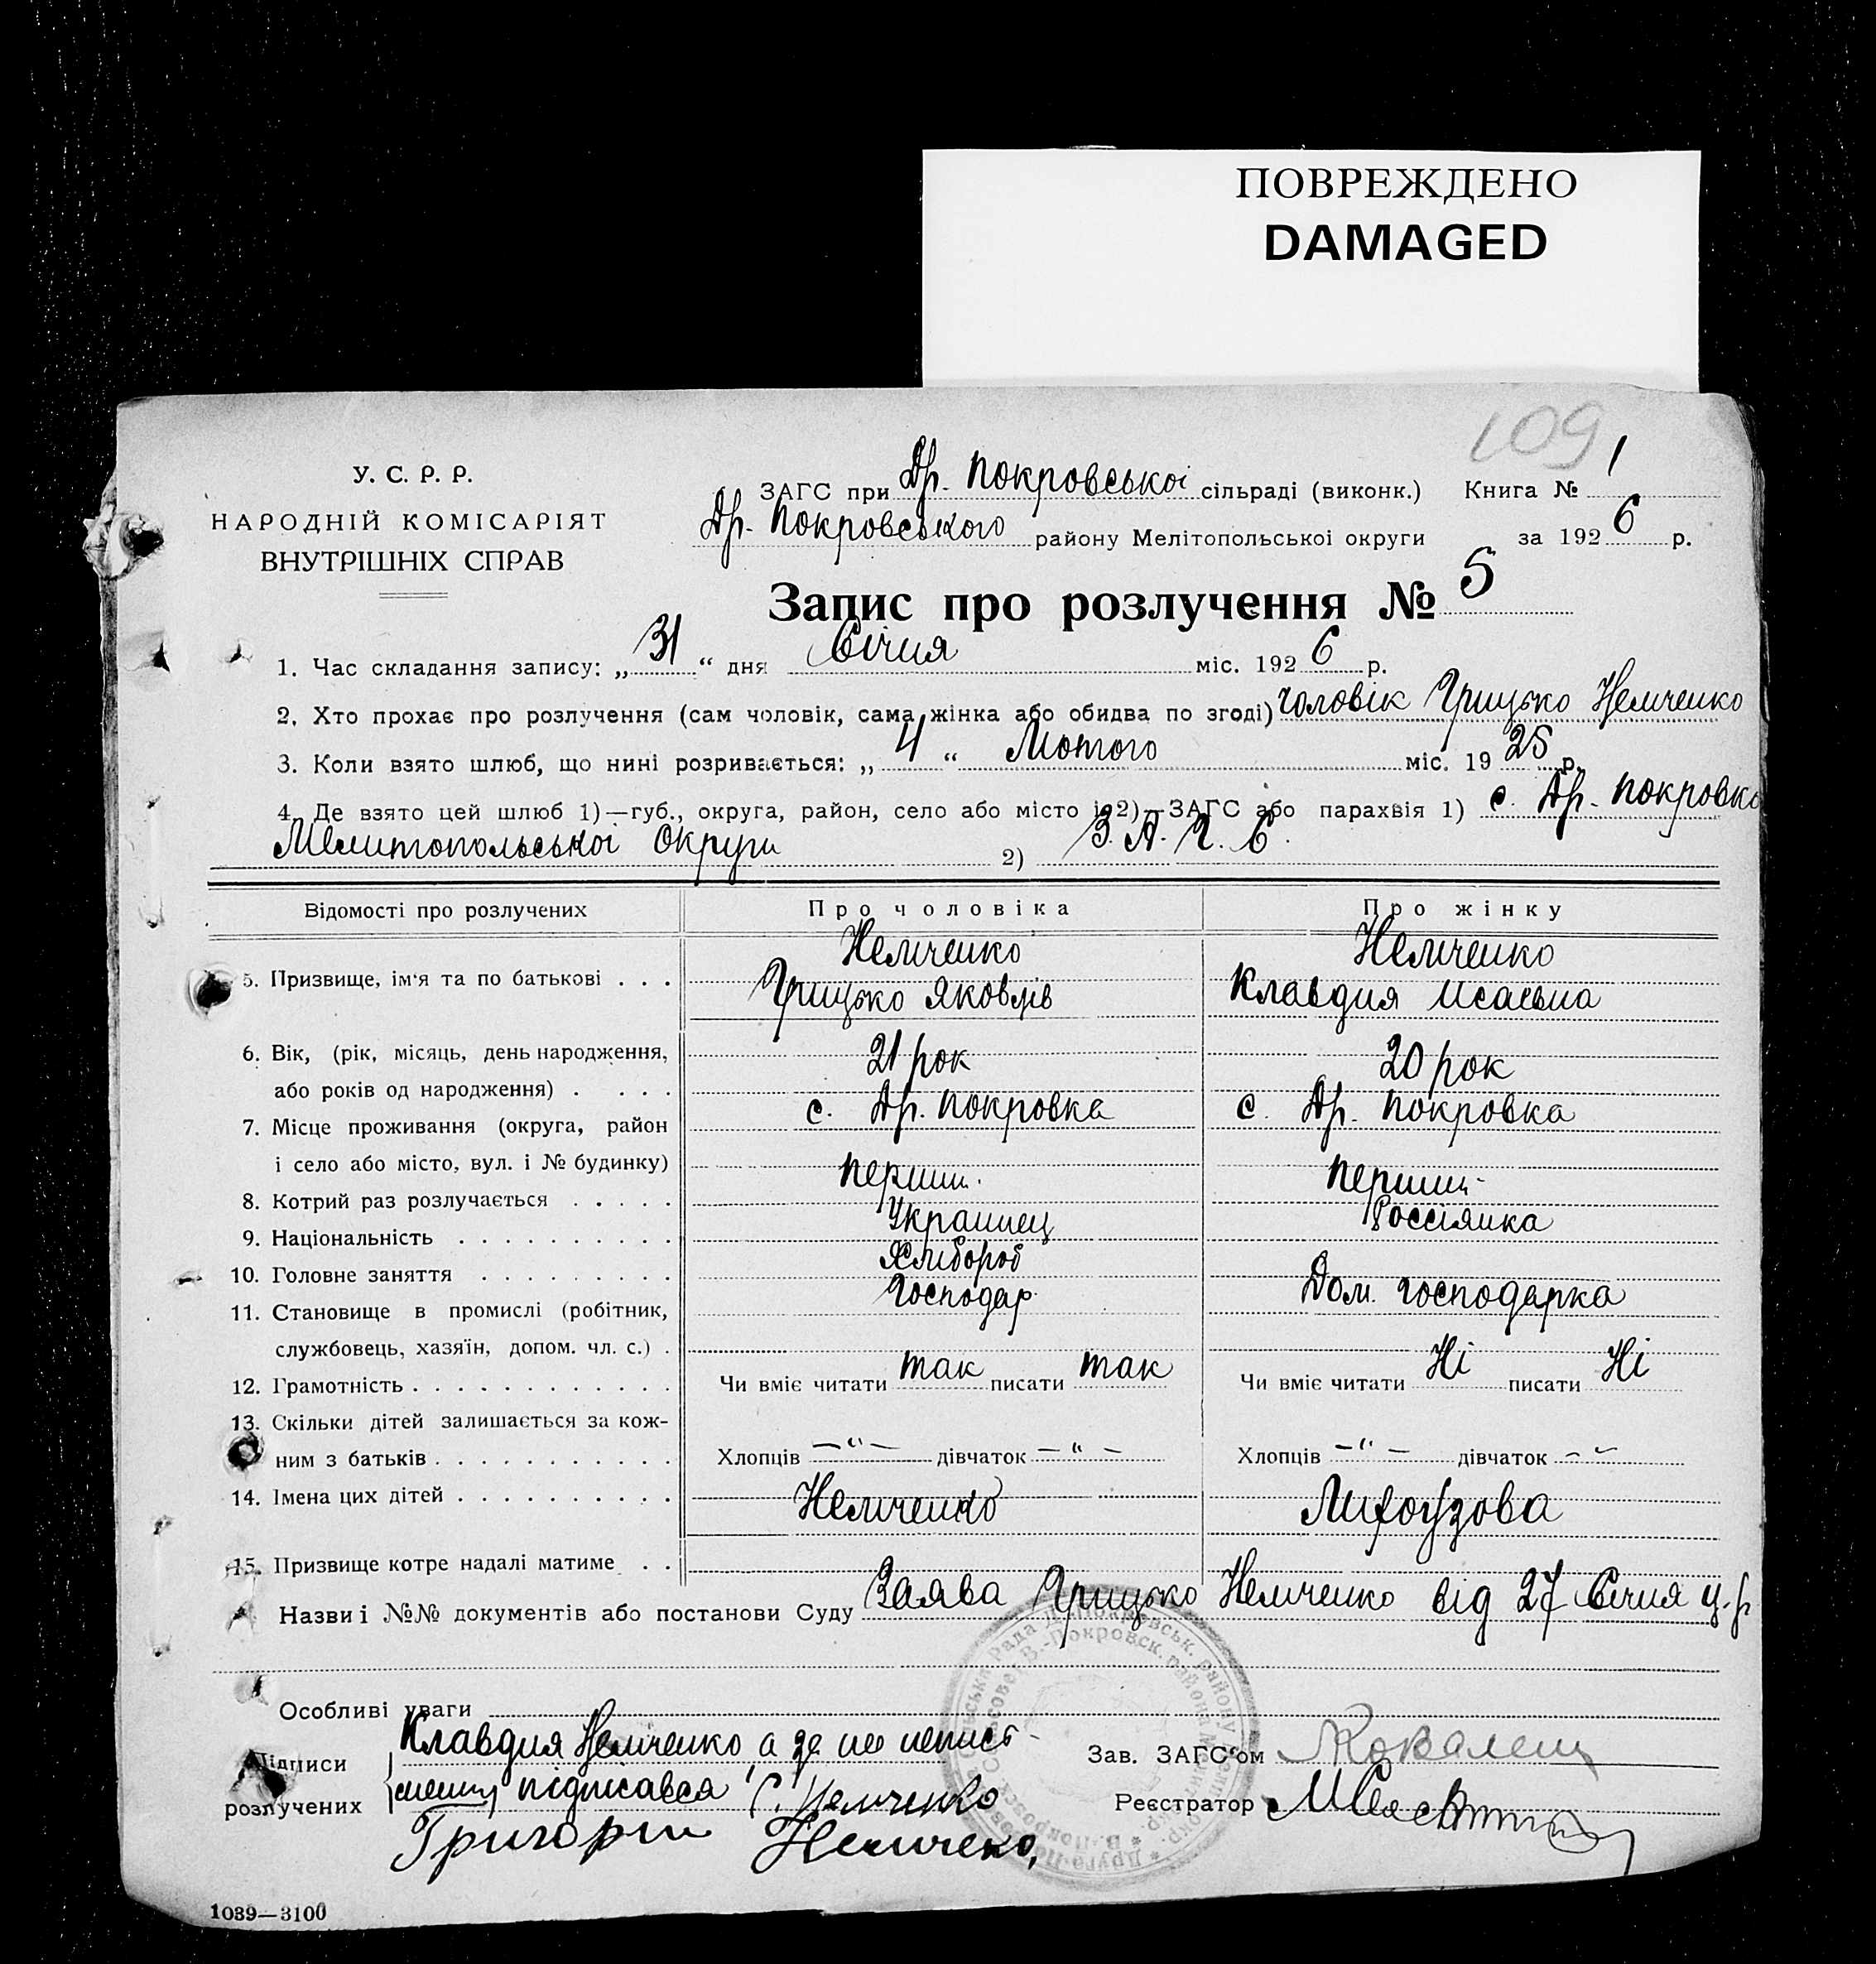 ПОВРЕЖДЕНО
DAMAGED
109
У. С. Р. Р.
НАРОДНІЙ КОМІСАРІЯТ
ВНУТРІШНІХ СПРАВ
ЗАГС при Др. Покровської сільраді (виконк.) Книга № 1
Др. Покровського району Мелітопольської округи за 1926 р.
Запис про розлучення № 5
1. Час складання запису: „31“ дня Січня міс. 1926 р.
2. Хто прохає про розлучення (сам чоловік, сама жінка або обидва по згоді) чоловік Грицько Немченко
3. Коли взято шлюб, що нині розривається: „4“ Лютого міс. 1925 р.
4. Де взято цей шлюб 1)—губ., округа, район, село або місто і 2)—ЗАГС або парахвія 1) с. Др. Покровка
Мелитопольської Округи 2) З. А. Г. С.
Відомості про розлучених Про чоловіка Про жінку
Немченко Немченко
5. Призвище, ім‘я та по батькові . . . Грицько Яковлів Клавдия Исаевна
6. Вік, (рік, місяць, день народження, 21 рок 20 рок
або років од народження) . . . .
7. Місце проживання (округа, район с. Др. Покровка с. Др. Покровка
і село або місто, вул. і № будинку)
8. Котрий раз розлучається . . . . . перший. перший.
9. Національність . . . . . . . . . . Украинец Россіянка
10. Головне заняття . . . . . . . . . Хлибороб
11. Становище в промислі (робітник, Господар. Дом. господарка
службовець, хазяїн, допом. чл. с.) .
12. Грамотність . . . . . . . . . . . . Чи вміє читати так писати так Чи вміє читати Ні писати Ні
13. Скільки дітей залишається за кож-
ним з батьків . . . . . . . . . . . Хлопців —"— дівчаток —"— Хлопців —"— дівчаток —"—
14. Імена цих дітей . . . . . . . . . . Немченко
15. Призвище котре надалі матиме . .
Назви і №№ документів або постанови Суду Заява Грицько Немченко від 27 Січня ц.р
Особливі уваги
Підписи Клавдия Немченко, а за
розлучених підписався Г. Немченко
Зав. ЗАГС‘ом
Реєстратор
Григорій Немченко,
1039—3100